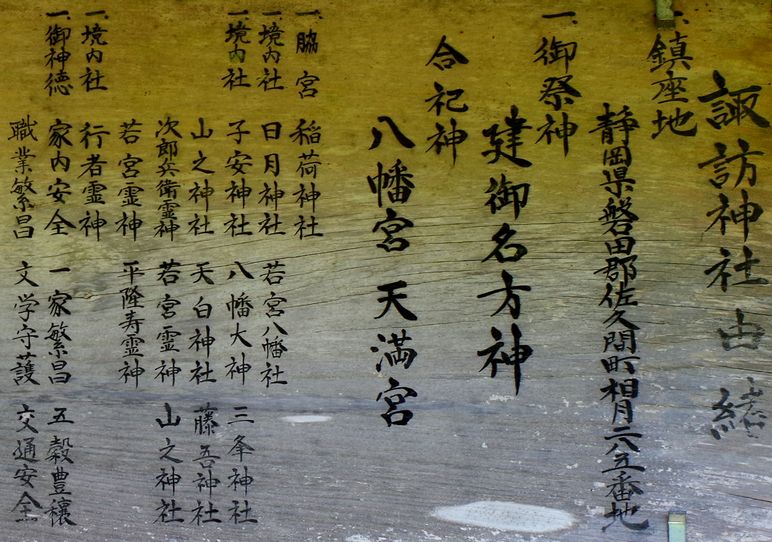 諏訪神社由緒
一、鎮座地
静岡県磐田郡佐久間町相月二八五番地
一、御祭神
建御名方神
合祀神
八幡宮 天満宮
一、脇宮 稲荷神社
一、境内社 日月神社 若宮八幡社
一、境内社 子安神社 八幡大神 三峯神社
山之神社 天白神社 藤吾神社
次郎兵衛霊神 若宮霊神 山之神社
若宮霊神 平隆寿霊神
一、境内社 行者霊神
一、御神徳 家内安全 一家繁昌 五穀豊穣
職業繁昌 文学守護 交通安全